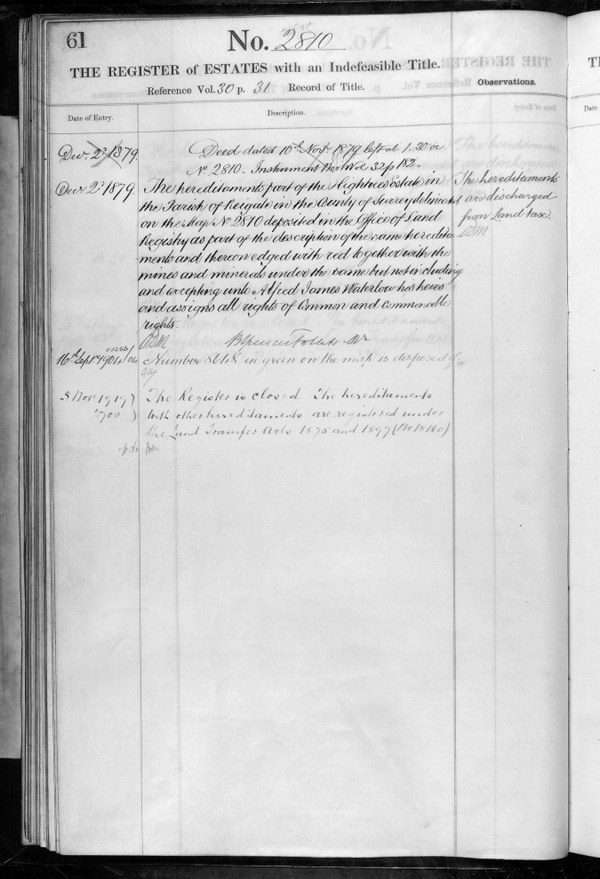 61
No. 2810
THE REGISTER of ESTATES with an Indefeasible Title.
Reference Vol. 30 p. 31 Record of Title.
Observations.
Date of Entry.
Description.
Decr 2d 1879.
Deed dated 10th Novr 1879 left at 1.30 oc
No 2810. Instrument Book Vol 32 p 182.
Decr 2d 1879.
The hereditaments part of the Nightrees Estate in
the Parish of Reigate in the County of Surrey delineated
on the Map No 2810 deposited in the Office of Land
Registry as part of the description of the same heredita
ments and thereon edged with red together with the
mines and minerals under the same but not including
and excepting unto Alfred James Waterlow his heirs
and assigns all rights of Common and commonable
rights.
The hereditaments
are discharged
from Land tax.
16th Sep
Number in green on the map is disposed of
5 Nov 1919
The Register is closed The hereditaments
with other hereditaments are registered under
the Land Transfer Acts 1875 and 1897